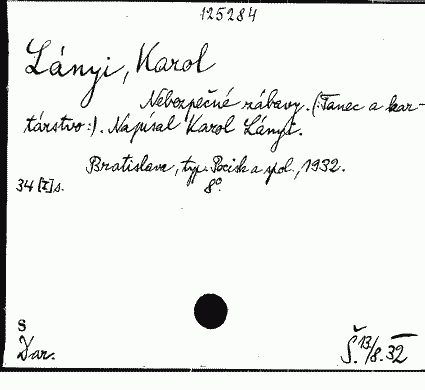 125284
Lányi, Karol
Nebezpečné zábavy. (:Tanec a kar-
társtvo:). Napísal Karol Lányi.
Bratislava, typ. Pocisk a spol., 1932.
34 [I] s. 8°
S
Dar.
Š. 13/8. 32